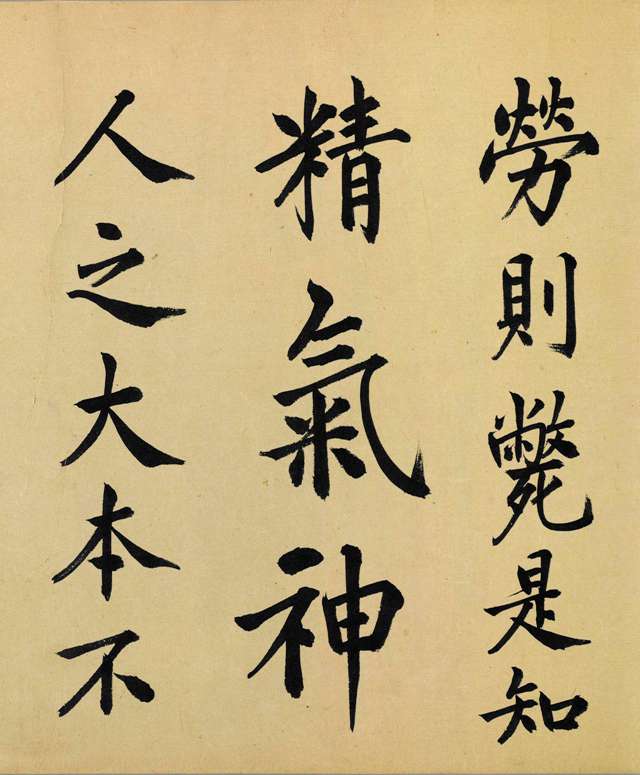 勞則斃是知
精氣神
人之大本不